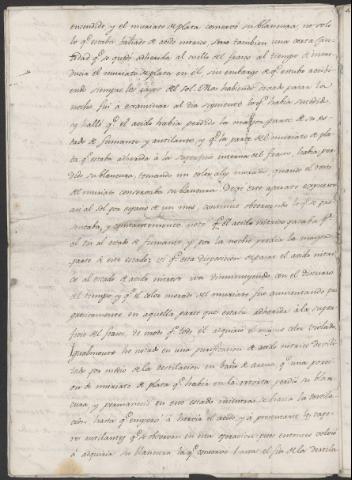 encendido y el muriate de plata conservó su blancura, no solo
lo qe. estaba bañado de acido nitroso sino tambien una corta can-
tidad qe. se quedó adherida al cuello del frasco al tiempo de intro-
ducir el muriato de plata en el, sin embargo de qe. estubo recibi-
endo siempre los rayos del sol. Mas habiendo cesado para la
noche fui á examinar al dia siguiente lo qe. habia sucedido
y hallé qe. el acido habia perdido la mayor parte de su es-
tado de fumante y rutilante y qe. la parte del muriato de pla-
ta qe. estaba adherida á la superficie interna del frasco habia per-
dido su blancura, tomando un color algo morado, quando el resto
del muriato conservaba su blancura. Dejé este aparato expuesto
asi al sol por espacio de un mes, continué observando lo qe. se pre-
sentaba, y constantemente noté qe. el acido nitrico pasaba pr.
el dia al estado de fumante y por la noche perdia la mayor
parte de este estado: vi qe. esta disposicion de pasar el acido nitri-
co al estado de acido nitroso iva disminuyendo con el discurso
del tiempo y qe. el color morado del muriato fue aumentando pro-
gresivamente en aquella parte que estaba adherida á la super-
ficie del frasco, de modo qe. todo él adquirió el mismo color violado.
Igualmente he notado en una purificacion de acido nitrico verifi-
cada por medio de la destilacion en baño de arena qe. una porci-
on de muriato de plata qe. habia en la retorta perdió su blan-
cura y permaneció en este estado mientras se hacia la destila-
cion, hasta qe. empezó á hervir el acido, y á presentarse los vapo-
res rutilantes qe. se observan en esta operacion: pues entonces volvió
á adquirir su blancura la qe. conservó hasta el fin de la destila-